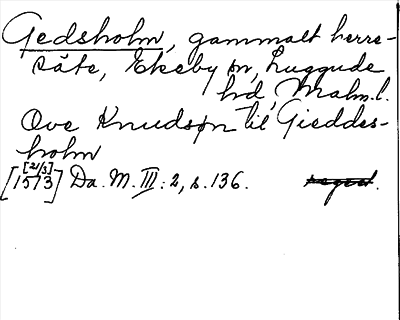 Gedsholm, gammalt herre-
säte, Ekeby sn, Luggude
hd, Malm. l.
Ove Knudsøn til Gieddes-
holm
[21/3]
[1573] Da. M. III: 2, s. 136.